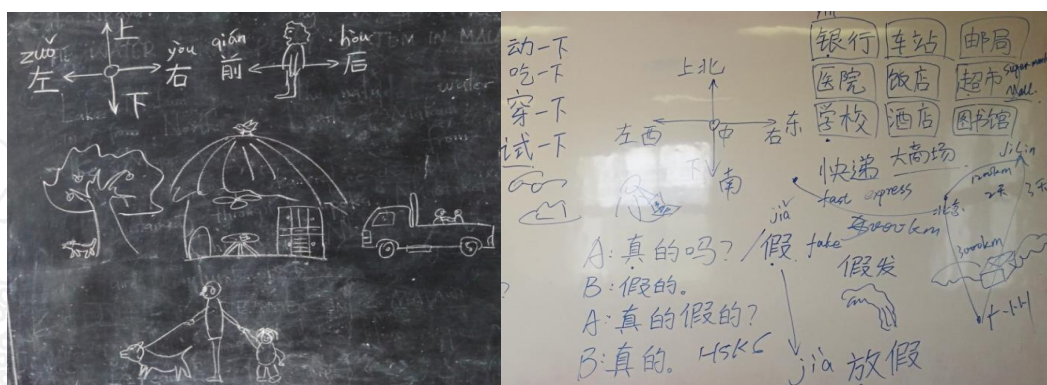 上
zuǒ
左
yòu
右
qián
前
hòu
后
下
动一下
吃一下
穿一下
试一下
上北
左西
中
右东
下南
银行 车站 邮局
医院 饭店 超市 supermarket
Mall
学校 酒店 图书馆
快递 大商场
fast express
北京
JiLin
2天
3天
3000km
3000km
jiǎ
A:真的吗?/假 fake
B:假的。
假发
A:真的假的?
B:真的. HSK6
jià 放假